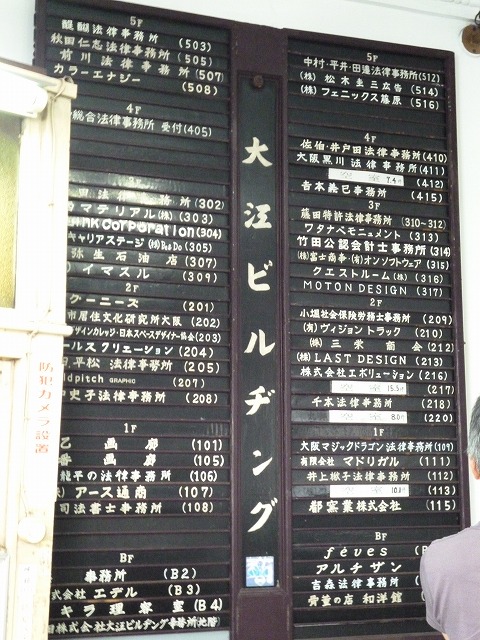 5F
醍醐法律事務所 (503)
秋田仁志法律事務所 (505)
前川法律事務所 (507)
カラーエナジー (508)
4F
総合法律事務所 受付(405)
田法律事務所 (302)
マテリアル(株) (303)
ink corporation (304)
キャリアステージ (株)BeDo (305)
弥生石油店 (307)
イマスル (309)
2F
グーニーズ (201)
市居住文化研究所大阪 (202)
デザインカレッジ・日本スペースデザイナー協会 (203)
ールスクリエーション (204)
平松法律事務所 (205)
ldpitch GRAPHIC (207)
史子法律事務所 (208)
1F
乙画廊 (101)
番画廊 (105)
龍平の法律事務所 (106)
アース通商 (107)
司法書士事務所 (108)
BF
事務所 (B2)
式会社 エデル (B3)
キラ理容室 (B4)
田株式会社大江ビルヂング事務所(地階)
防犯カメラ設置
大江ビルヂング
5F
中村・平井・田邉法律事務所 (512)
(株) 松木圭三広告 (514)
(株) フェニックス藤原 (516)
4F
佐伯・井戸田法律事務所 (410)
大阪黒川法律事務所 (411)
7.4坪 (412)
吉本義巳事務所 (415)
3F
藤田特許法律事務所 (310~312)
ワタナベモニュメント (313)
竹田公認会計士事務所 (314)
(株)富士商亭(有)オンソフトウェア (315)
クエストルーム(株) (316)
MOTON DESIGN (317)
2F
小堀社会保険労務士事務所 (209)
(有)ヴィジョントラック (210)
(株) 三栄商会 (212)
(株) LAST DESIGN (213)
株式会社エボリューション (216)
15.5坪 (217)
千本法律事務所 (218)
8.0坪 (220)
1F
大阪マジックドラゴン法律事務所 (109)
有限会社 マドリガル (111)
井上椒子法律事務所 (112)
(113)
都窯業株式会社 (115)
BF
fèves
アルチザン
吉森法律事務所
骨董の店 和洋館